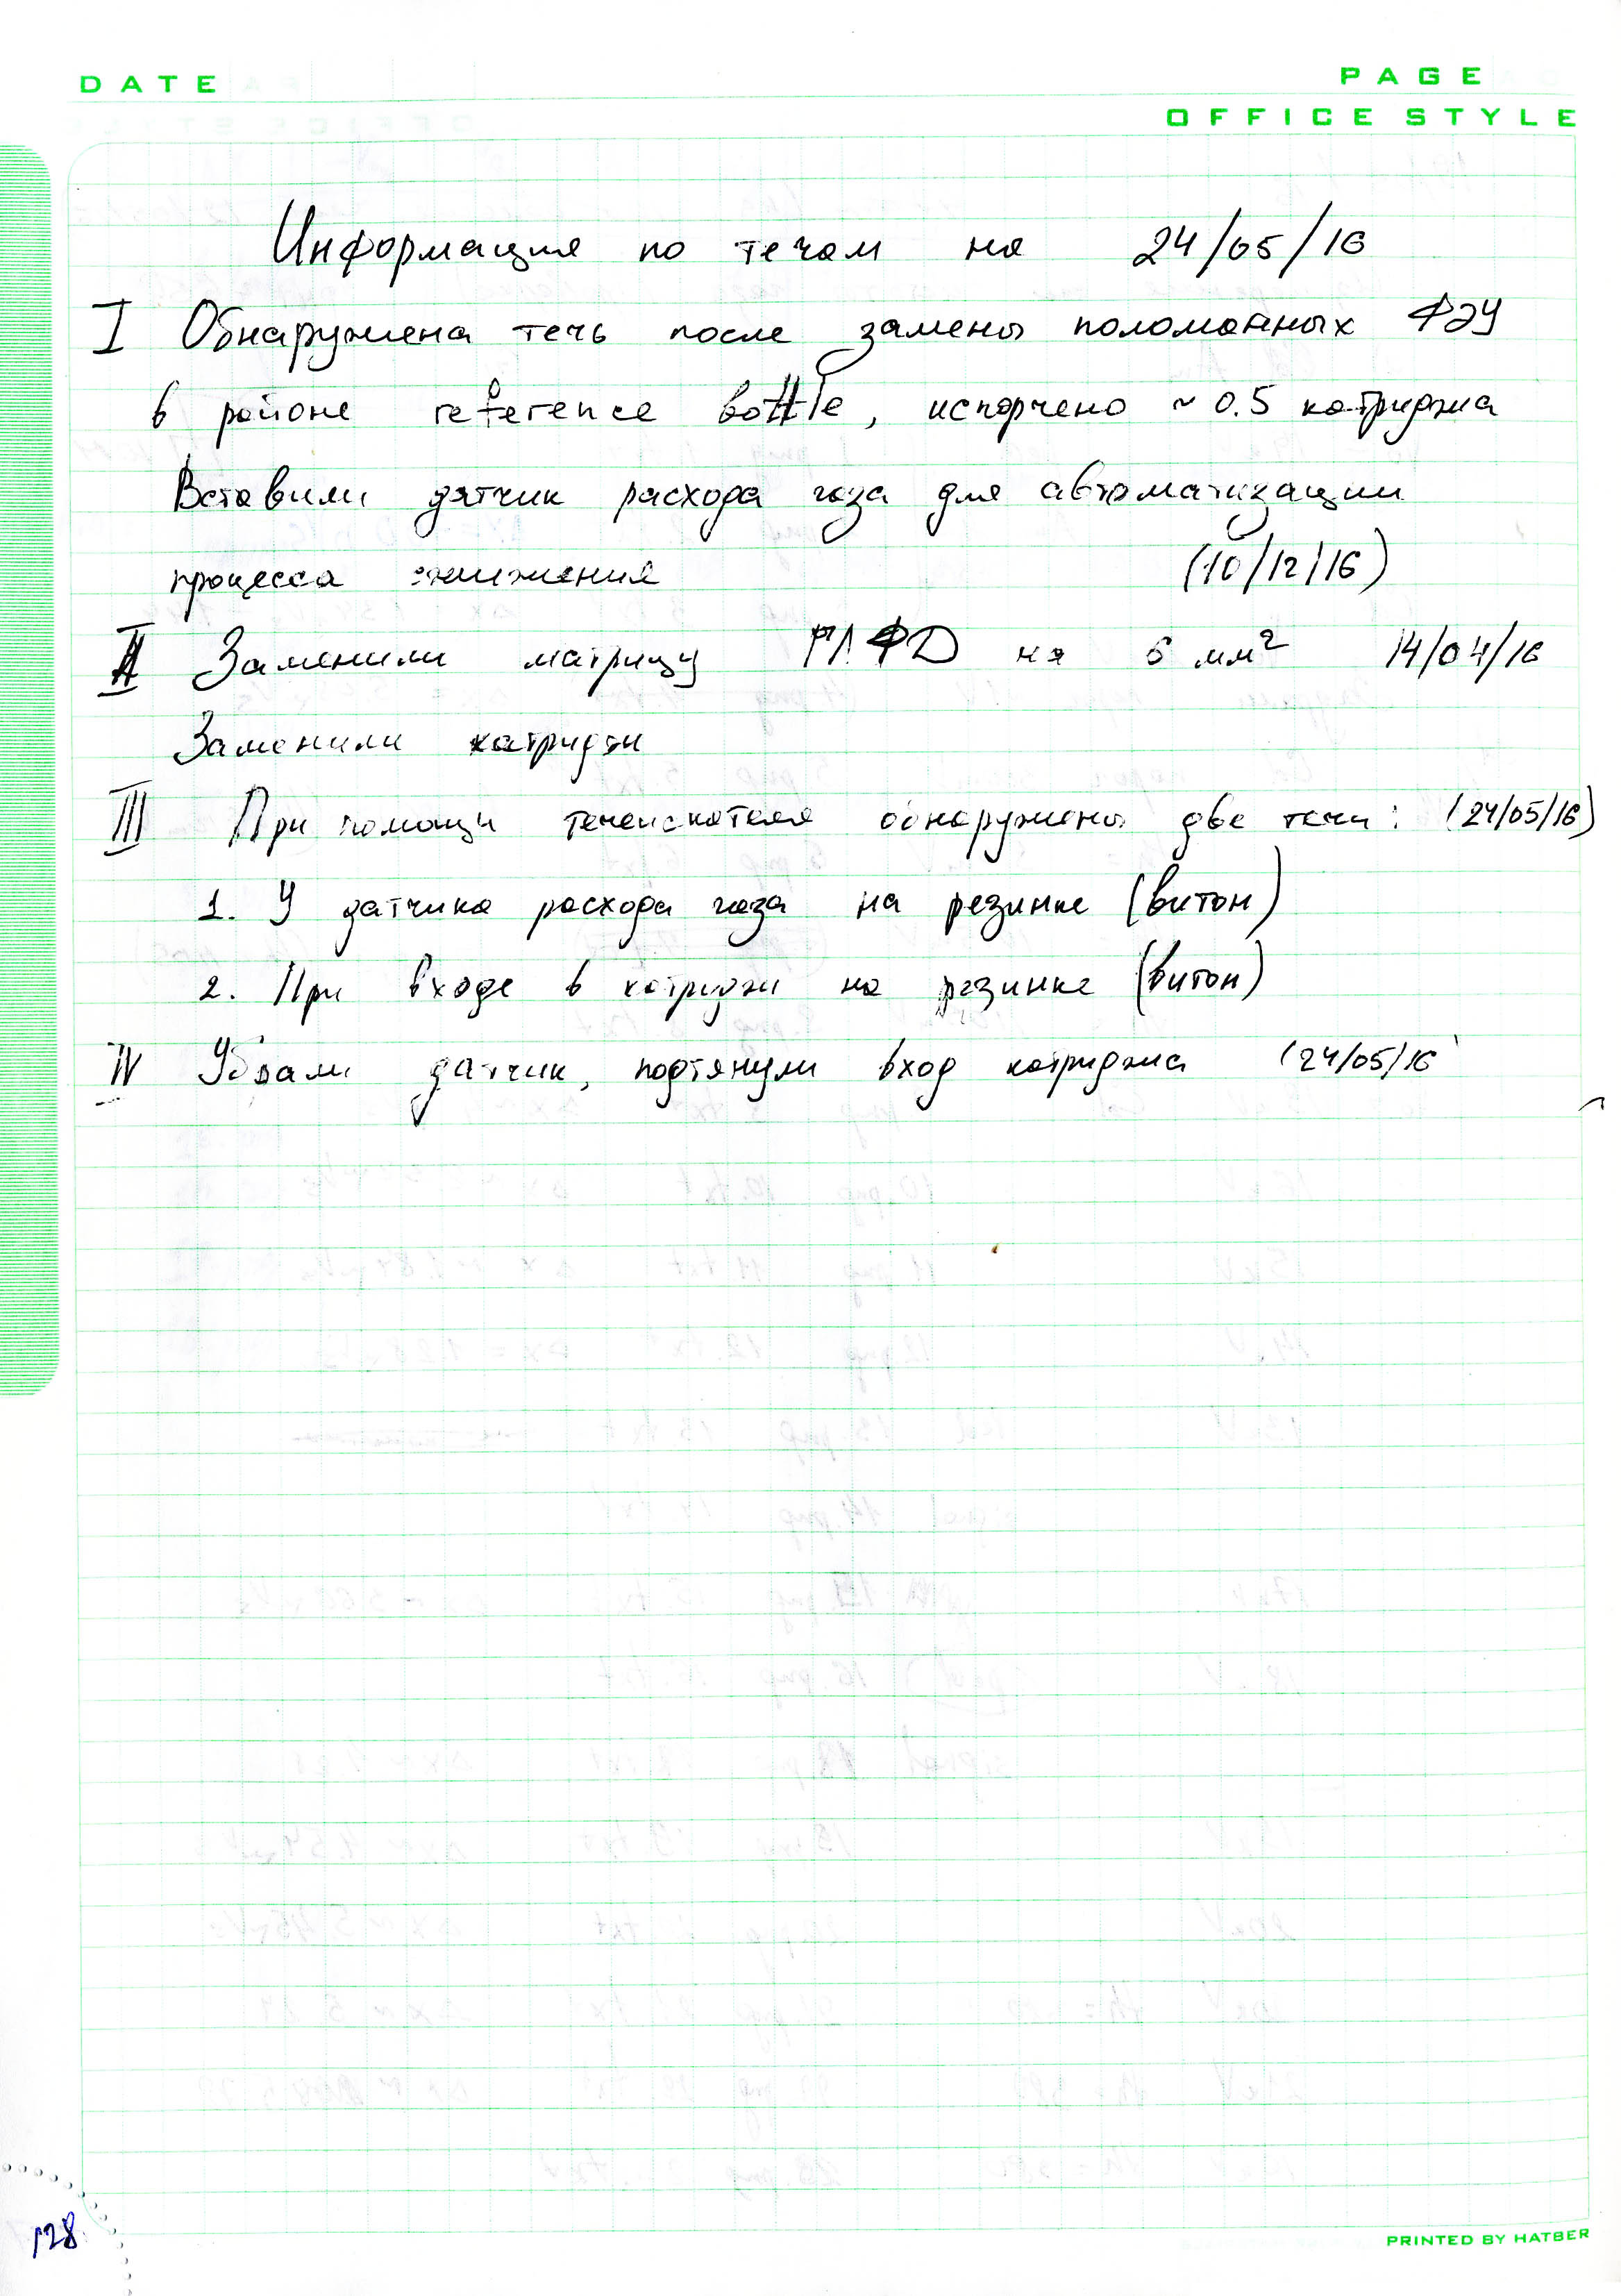 DATE
PAGE
OFFICE STYLE
Информация по течам на 24/05/16
I Обнаружена течь после замены поломанных ФЭУ
в районе reference bottle, испорчено ~ 0.5 катриджа
Вставили датчик расхода газа для автоматизации
процесса ожижения (10/12/16)
II Заменили матрицу ГЛФД на 6 мм² 14/04/16
Заменили катридж
III При помощи течеискателя обнаружены две течи: (24/05/16)
1. У датчика расхода газа на резинке (витон)
2. При входе в катридж на резинке (витон)
IV Убрали датчик, подтянули вход катриджа (24/05/16
128
PRINTED BY HATBER